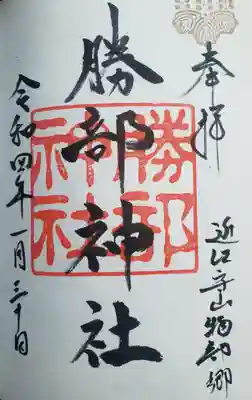 奉拝
近江守山物部郷
勝部神社
勝部神社
令和四年一月三十日